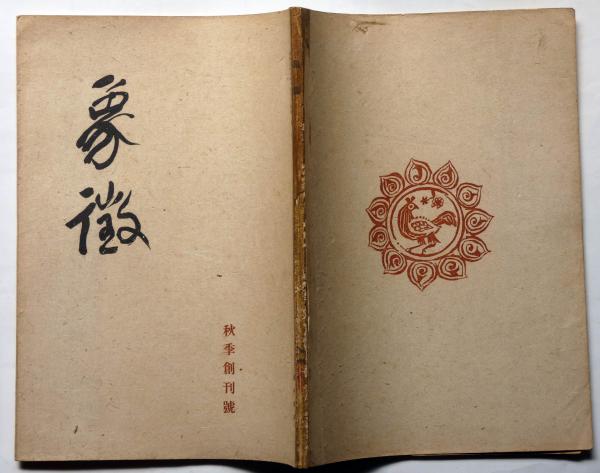 象徴
秋季創刊號